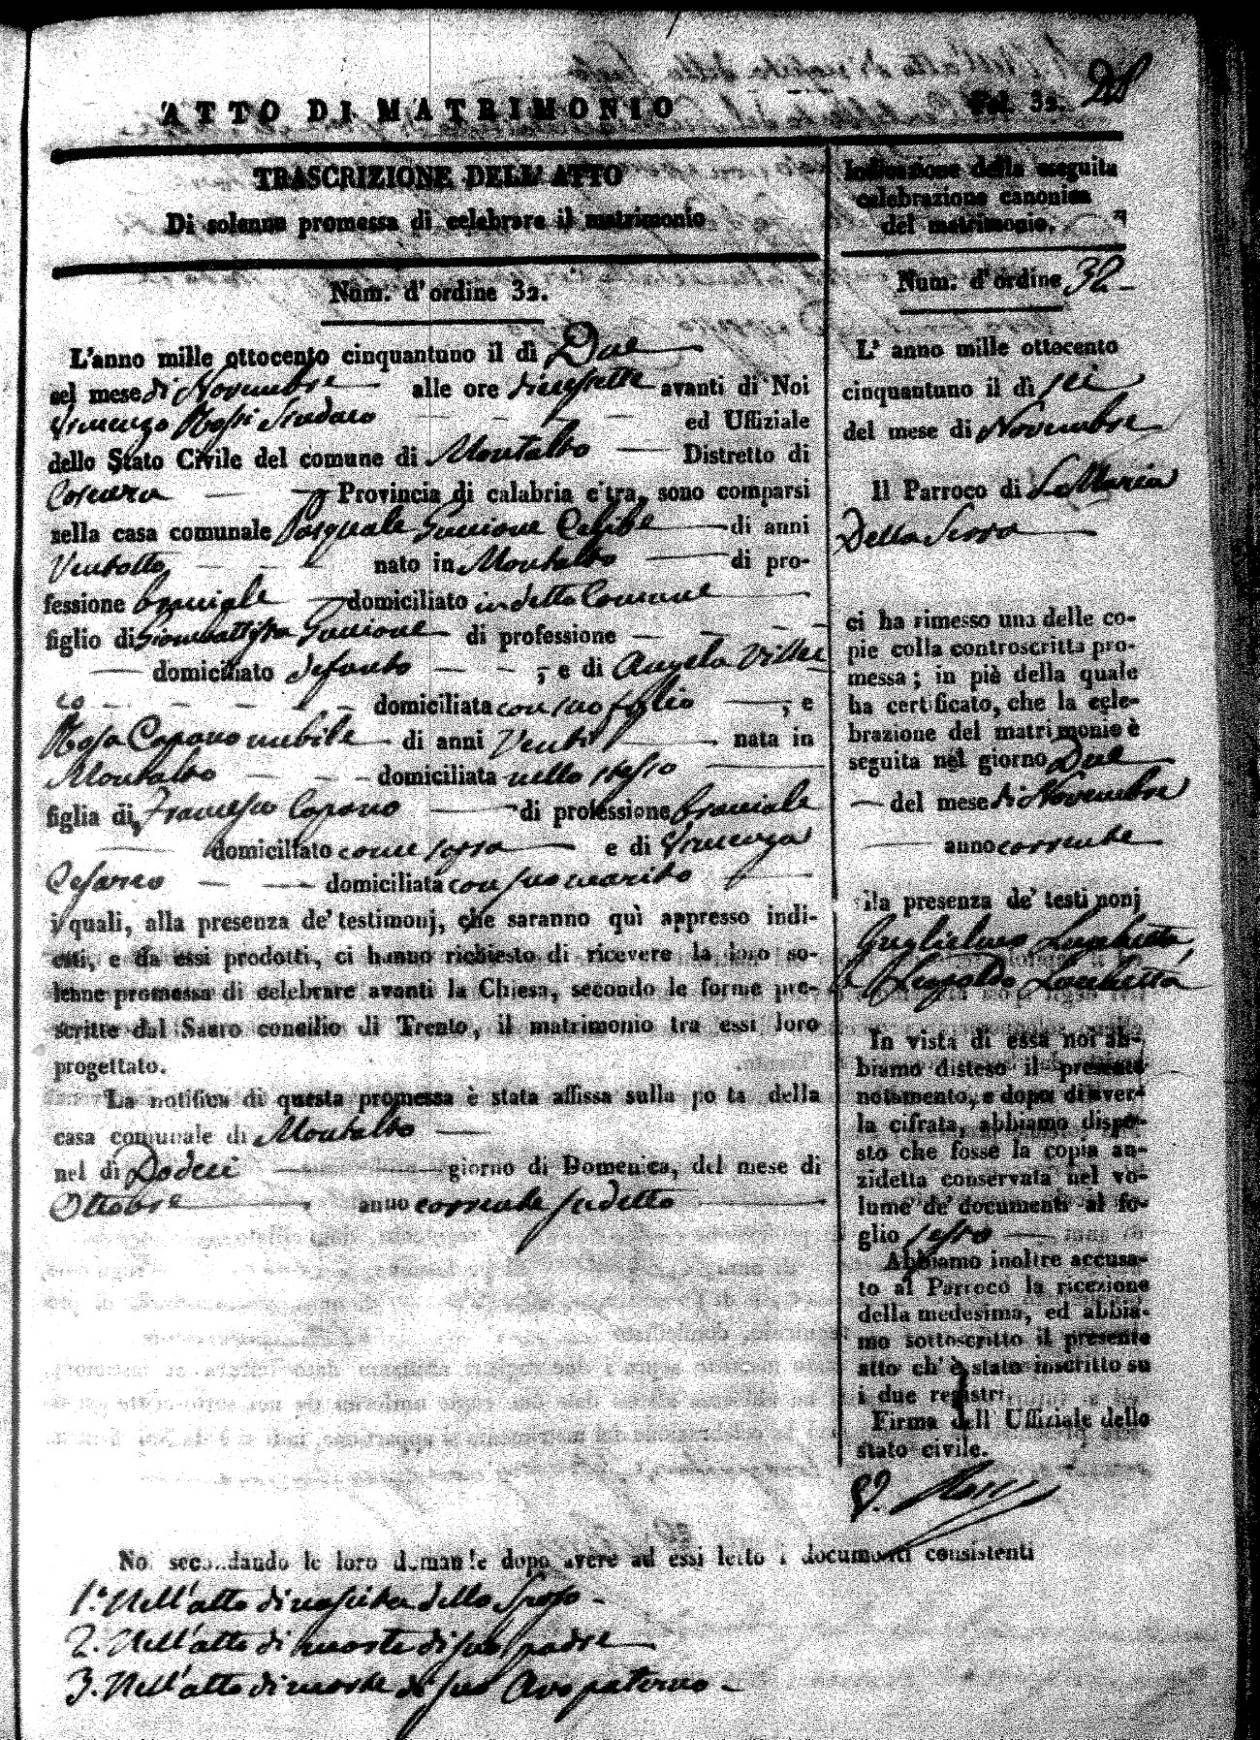 ATTO DI MATRIMONIO
Fol. 32.
TRASCRIZIONE DELL' ATTO
Di solenne promessa di celebrare il matrimonio
Num. d'ordine 32.
L'anno mille ottocento cinquantuno il dì Due
nel mese di Novembre alle ore diecissette avanti di Noi
Vincenzo Rossi Sindaco ed Uffiziale
dello Stato Civile del comune di Montalto Distretto di
Cosenza Provincia di calabria citra, sono comparsi
nella casa comunale Pasquale Guccione Celibe di anni
Ventotto nato in Montalto di pro-
fessione bracciale domiciliato in detto Comune
figlio di Giombattista Guccione di professione
domiciliato defunto , e di Angela
domiciliata con suo figlio , e
Rosa Capano nubile di anni Venti nata in
Montalto domiciliata nello stesso
figlia di Francesco Capano di professione bracciale
domiciliato come sopra e di Vincenza
Cesareo domiciliata con suo marito
i quali, alla presenza de' testimonj, che saranno quì appresso indi-
cati, e da essi prodotti, ci hanno richiesto di ricevere la loro so-
lenne promessa di celebrare avanti la Chiesa, secondo le forme pre-
scritte dal Sacro concilio di Trento, il matrimonio tra essi loro
progettato.
La notifica di questa promessa è stata affissa sulla po ta della
casa comunale di Montalto
nel dì Dodeci giorno di Domenica, del mese di
Ottobre anno corrente sudetto
Indicazione della seguita
celebrazione canonica
del matrimonio.
Num. d'ordine 32
L' anno mille ottocento
cinquantuno il dì sei
del mese di Novembre
Il Parroco di S. Maria
Della Serra
ci ha rimesso una delle co-
pie colla controscritta pro-
messa; in piè della quale
ha certificato, che la cele-
brazione del matrimonio è
seguita nel giorno Due
del mese di Novembre
anno corrente
alla presenza de' testimonj
Guglielmo Lucchetta
e Leopoldo Lucchetta
In vista di essa noi ab-
biamo disteso il presente
notamento, e dopo di aver-
la cifrata, abbiamo dispo-
sto che fosse la copia an-
zidetta conservata nel vo-
lume de' documenti al fo-
glio sesto
Abbiamo inoltre accusa-
to al Parroco la ricezione
della medesima, ed abbia-
mo sottoscritto il presente
atto ch' è stato inscritto su
i due registri.
Firma dell' Uffiziale dello
stato civile.
V. Rossi
Noi secondando le loro domande dopo avere ad essi letto i documenti consistenti
1.° Nell'atto di nascita dello Sposo
2. Nell'atto di morte di suo padre
3. Nell'atto di morte di suo Avo paterno